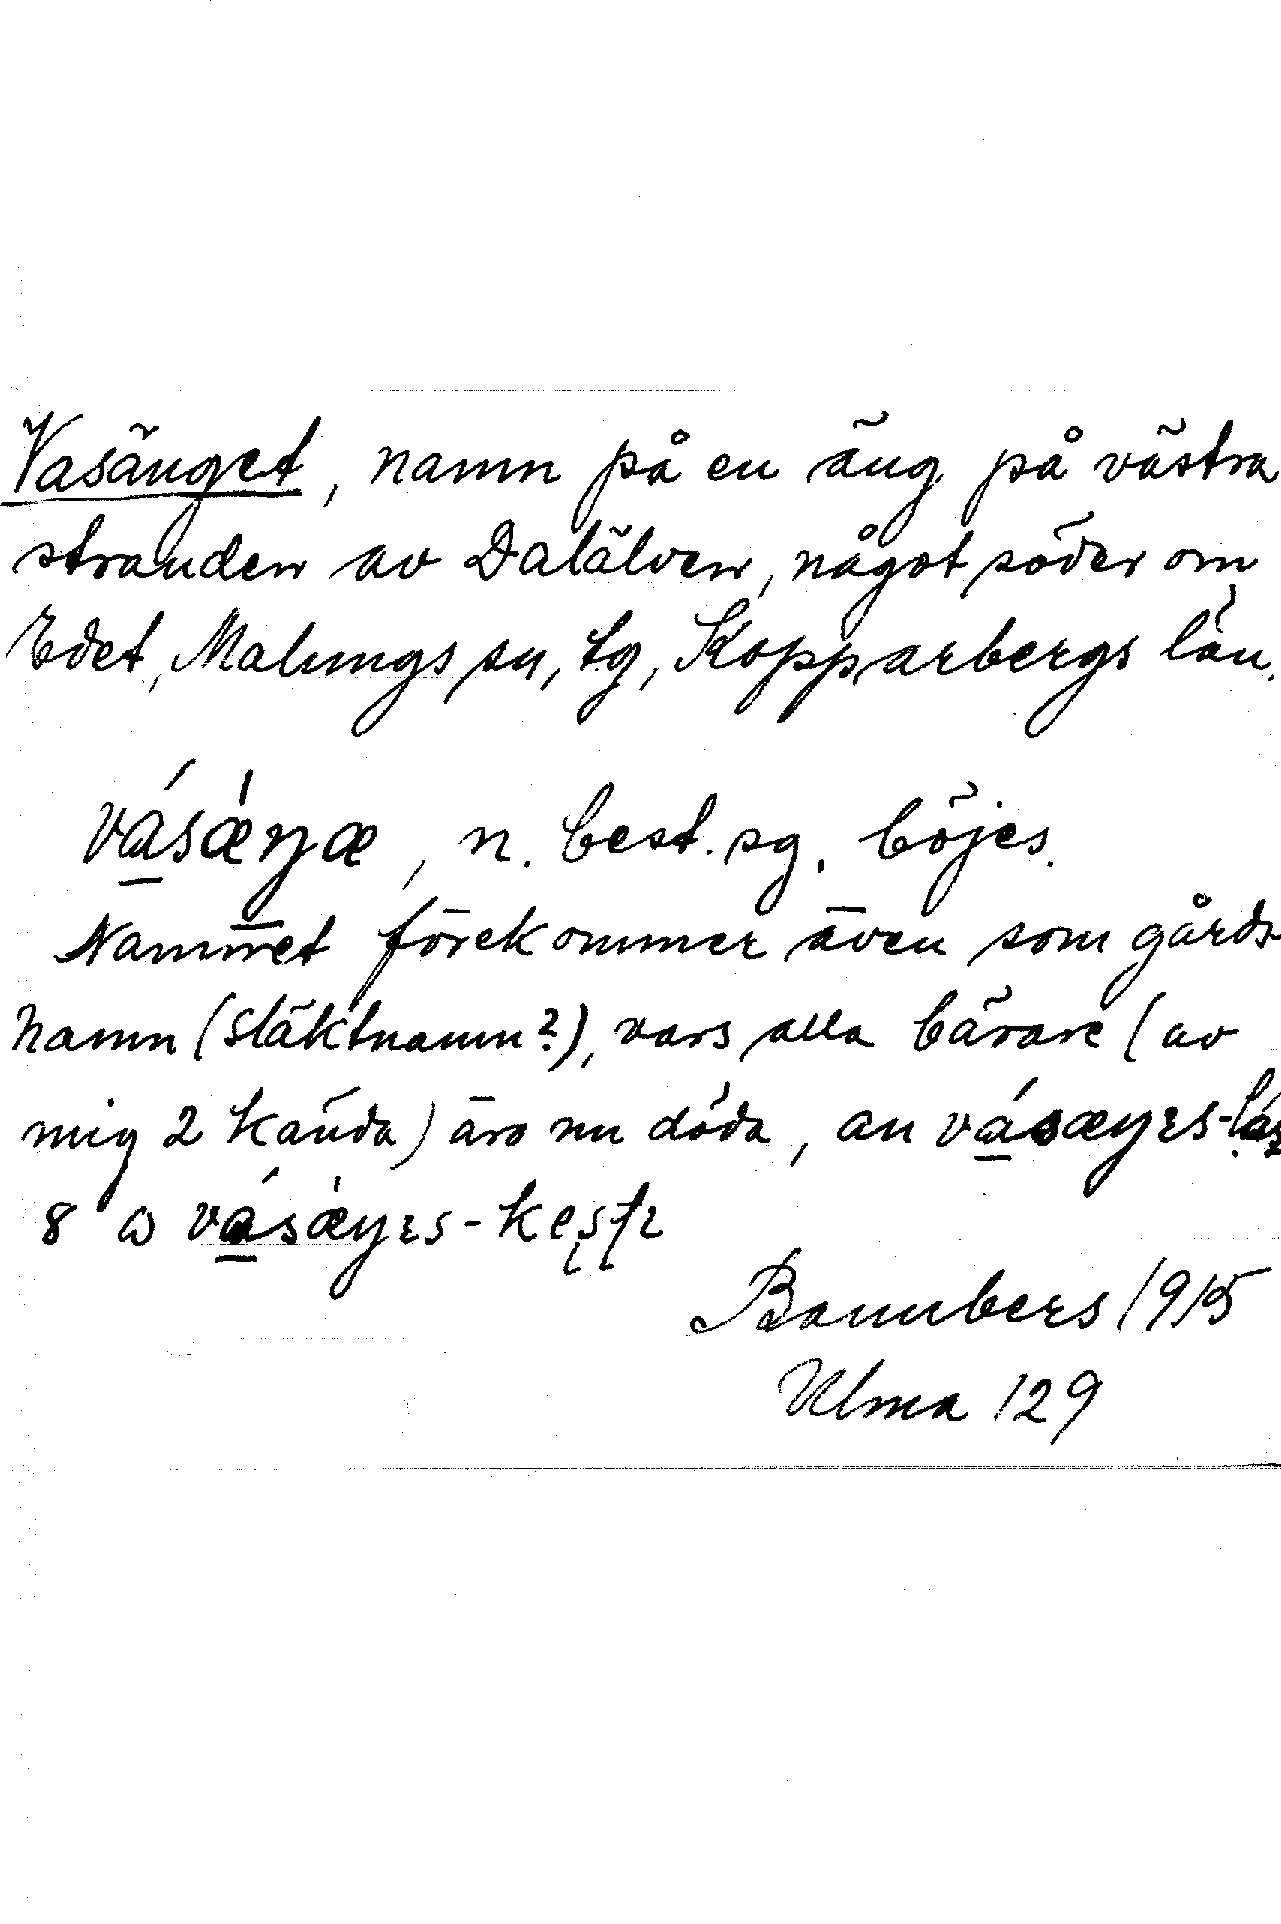 Vasänget, namn på en äng på västra
stranden av Dalälven, något söder om
Edet, Malungs sn, tg, Kopparbergs län.
vásǽŋæ, n. best. sg. böjes.
Namnet förekommer även som gårds-
namn (släktnamn?), vars alla bärare (av
mig 2 kända) äro nu döda, an vásæŋɪs-
vásǽŋɪs-
Bannbers 1915
Ulma 129